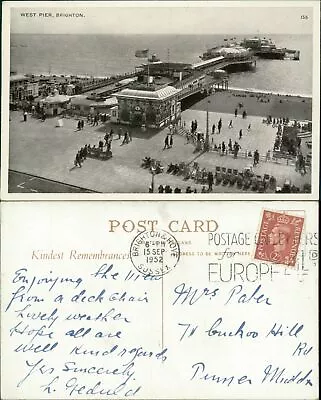 WEST PIER, BRIGHTON.
156
POST CARD
Kindest Remembrances
TO BE WRITTEN HERE
BRIGHTON & HOVE
6 PM
15 SEP
1952
SUSSEX
POSTAGE
for
EUROPE
Enjoying the view
from a deck chair
Lovely weather
Hope all are
well kind regards
Yrs Sincerely
L.
Mrs Pater
711 Cuckoo Hill
Rd
Pinner Middx